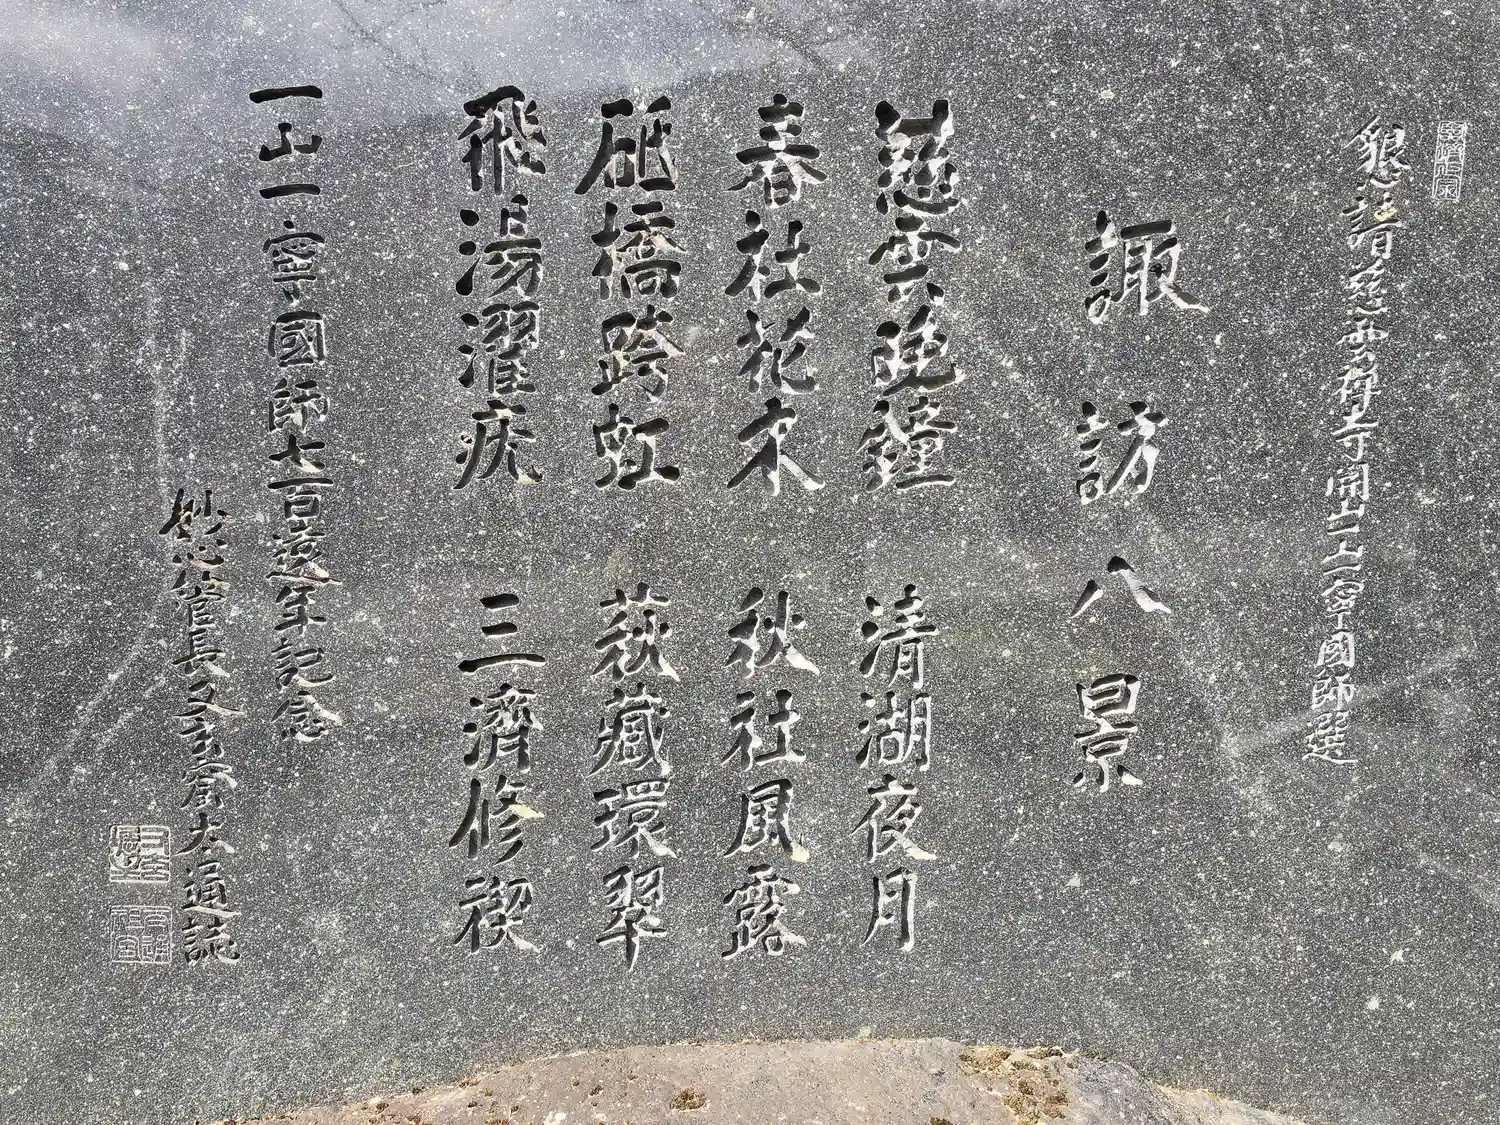 懇請慈雲禅寺開山一山一寧國師選
諏訪八景
慈雲晩鐘　清湖夜月
春社花木　秋社風露
砥橋跨虹　荻藏環翠
飛湯濯疢　三濟修禊
一山一寧國師七百遠年記念
妙心管長又玄窟太通誌